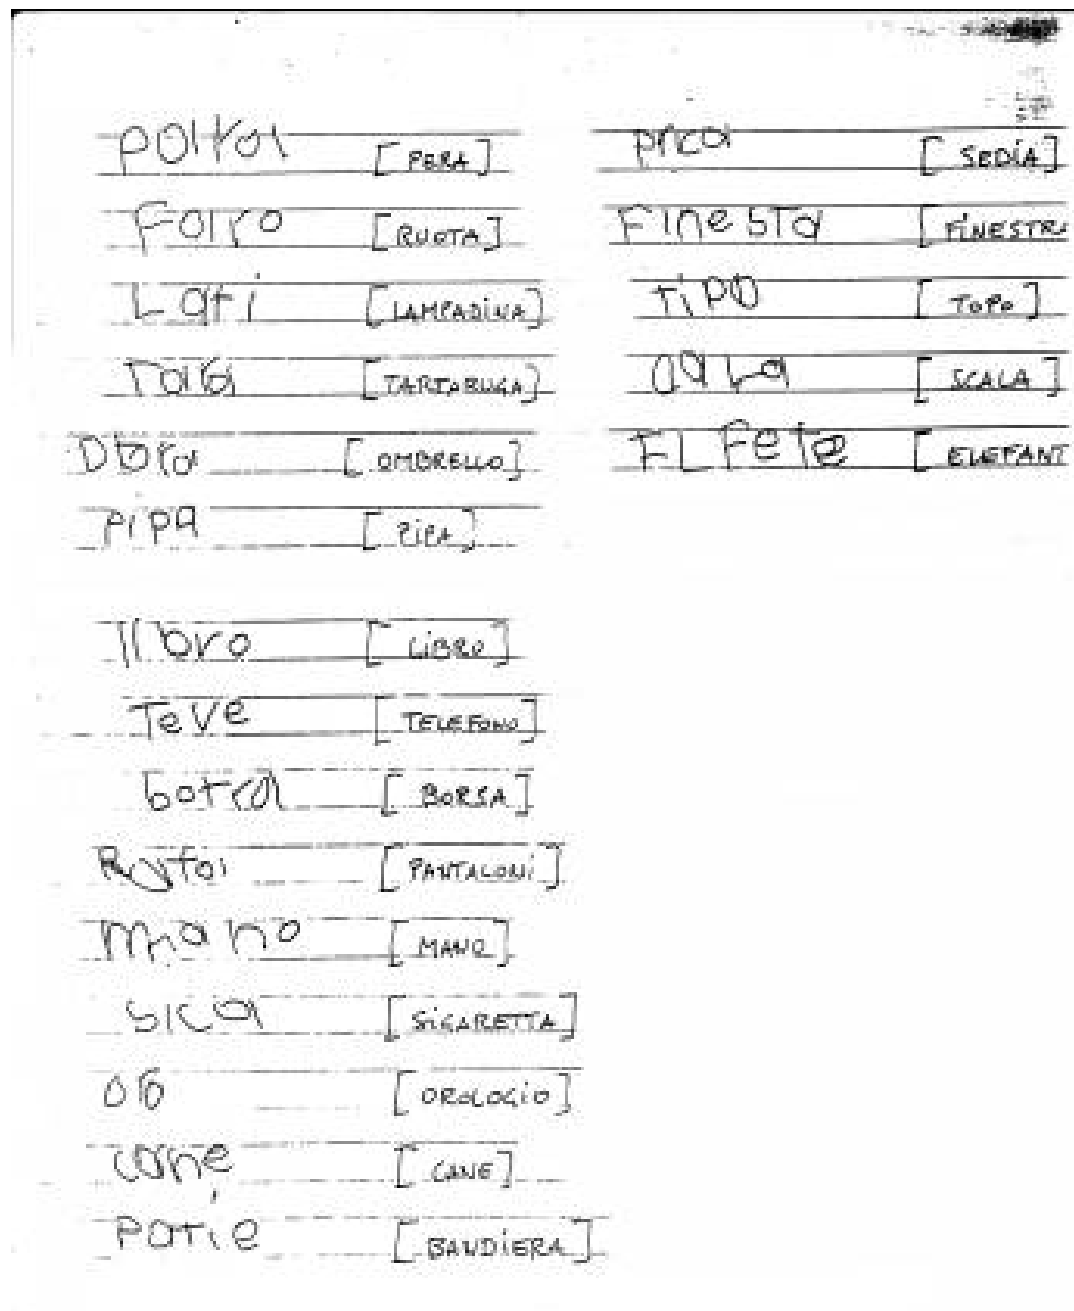 parra [PERA]
Foiro [RUOTA]
Lati [LAMPADINA]
Tara [TARTARUGA]
Dbra [OMBRELLO]
pipa [PIPA]
libro [LIBRO]
Teve [TELEFONO]
botra [BORSA]
[PANTALONI]
mano [MANO]
sica [SIGARETTA]
[OROLOGIO]
cane [CANE]
Patie [BANDIERA]
prca [SEDIA]
Finesta [FINESTR
TiPO [TOPO]
[SCALA]
FLFete [ELEFANT